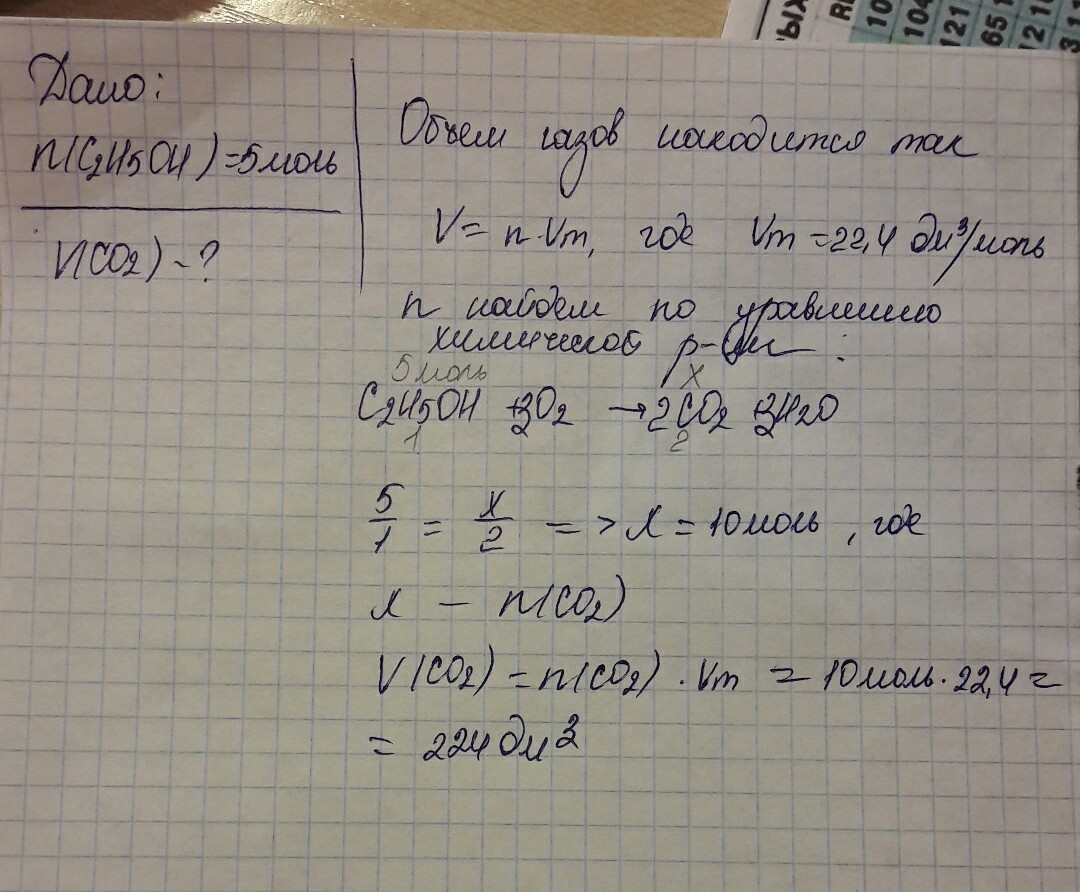 Дано:
n(C2H5OH)=5моль
V(CO2)-?
Объем газов находится так
V= n·Vm, где Vm=22,4 дм³/моль
n найдем по уравнению
химической р-ции:
5моль x
C2H5OH +3O2 →2CO2 +3H2O
1 2
5/1 = x/2 => x=10моль, где
x - n(CO2)
V(CO2)=n(CO2)·Vm = 10моль·22,4=
= 224 дм³
ТЫХ
RE
10
104
121
65 1
12 1
3 11